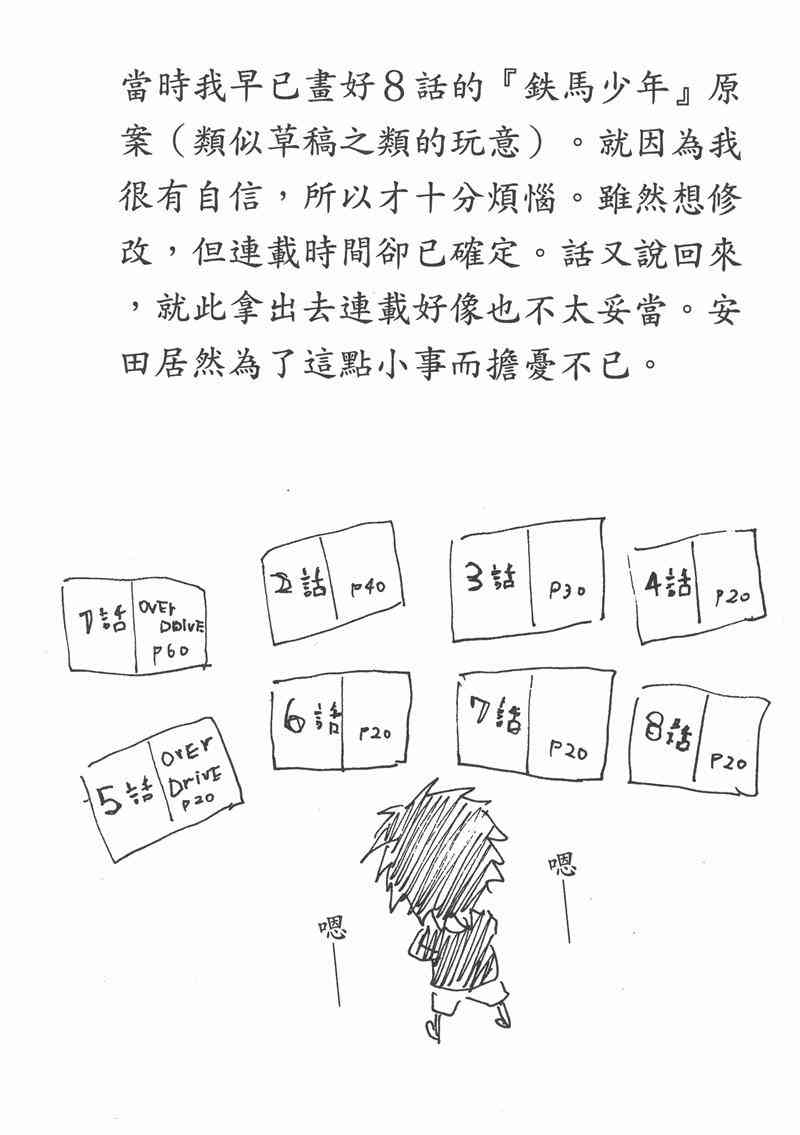 當時我早已畫好8話的『鉄馬少年』原
案（類似草稿之類的玩意）。就因為我
很有自信，所以才十分煩惱。雖然想修
改，但連載時間卻已確定。話又說回來
，就此拿出去連載好像也不太妥當。安
田居然為了這點小事而擔憂不已。
1話
OVER
DRIVE
P60
2話
P40
3話
P30
4話
P20
5話
OVER
DRIVE
P20
6話
P20
7話
P20
8話
P20
嗯
嗯